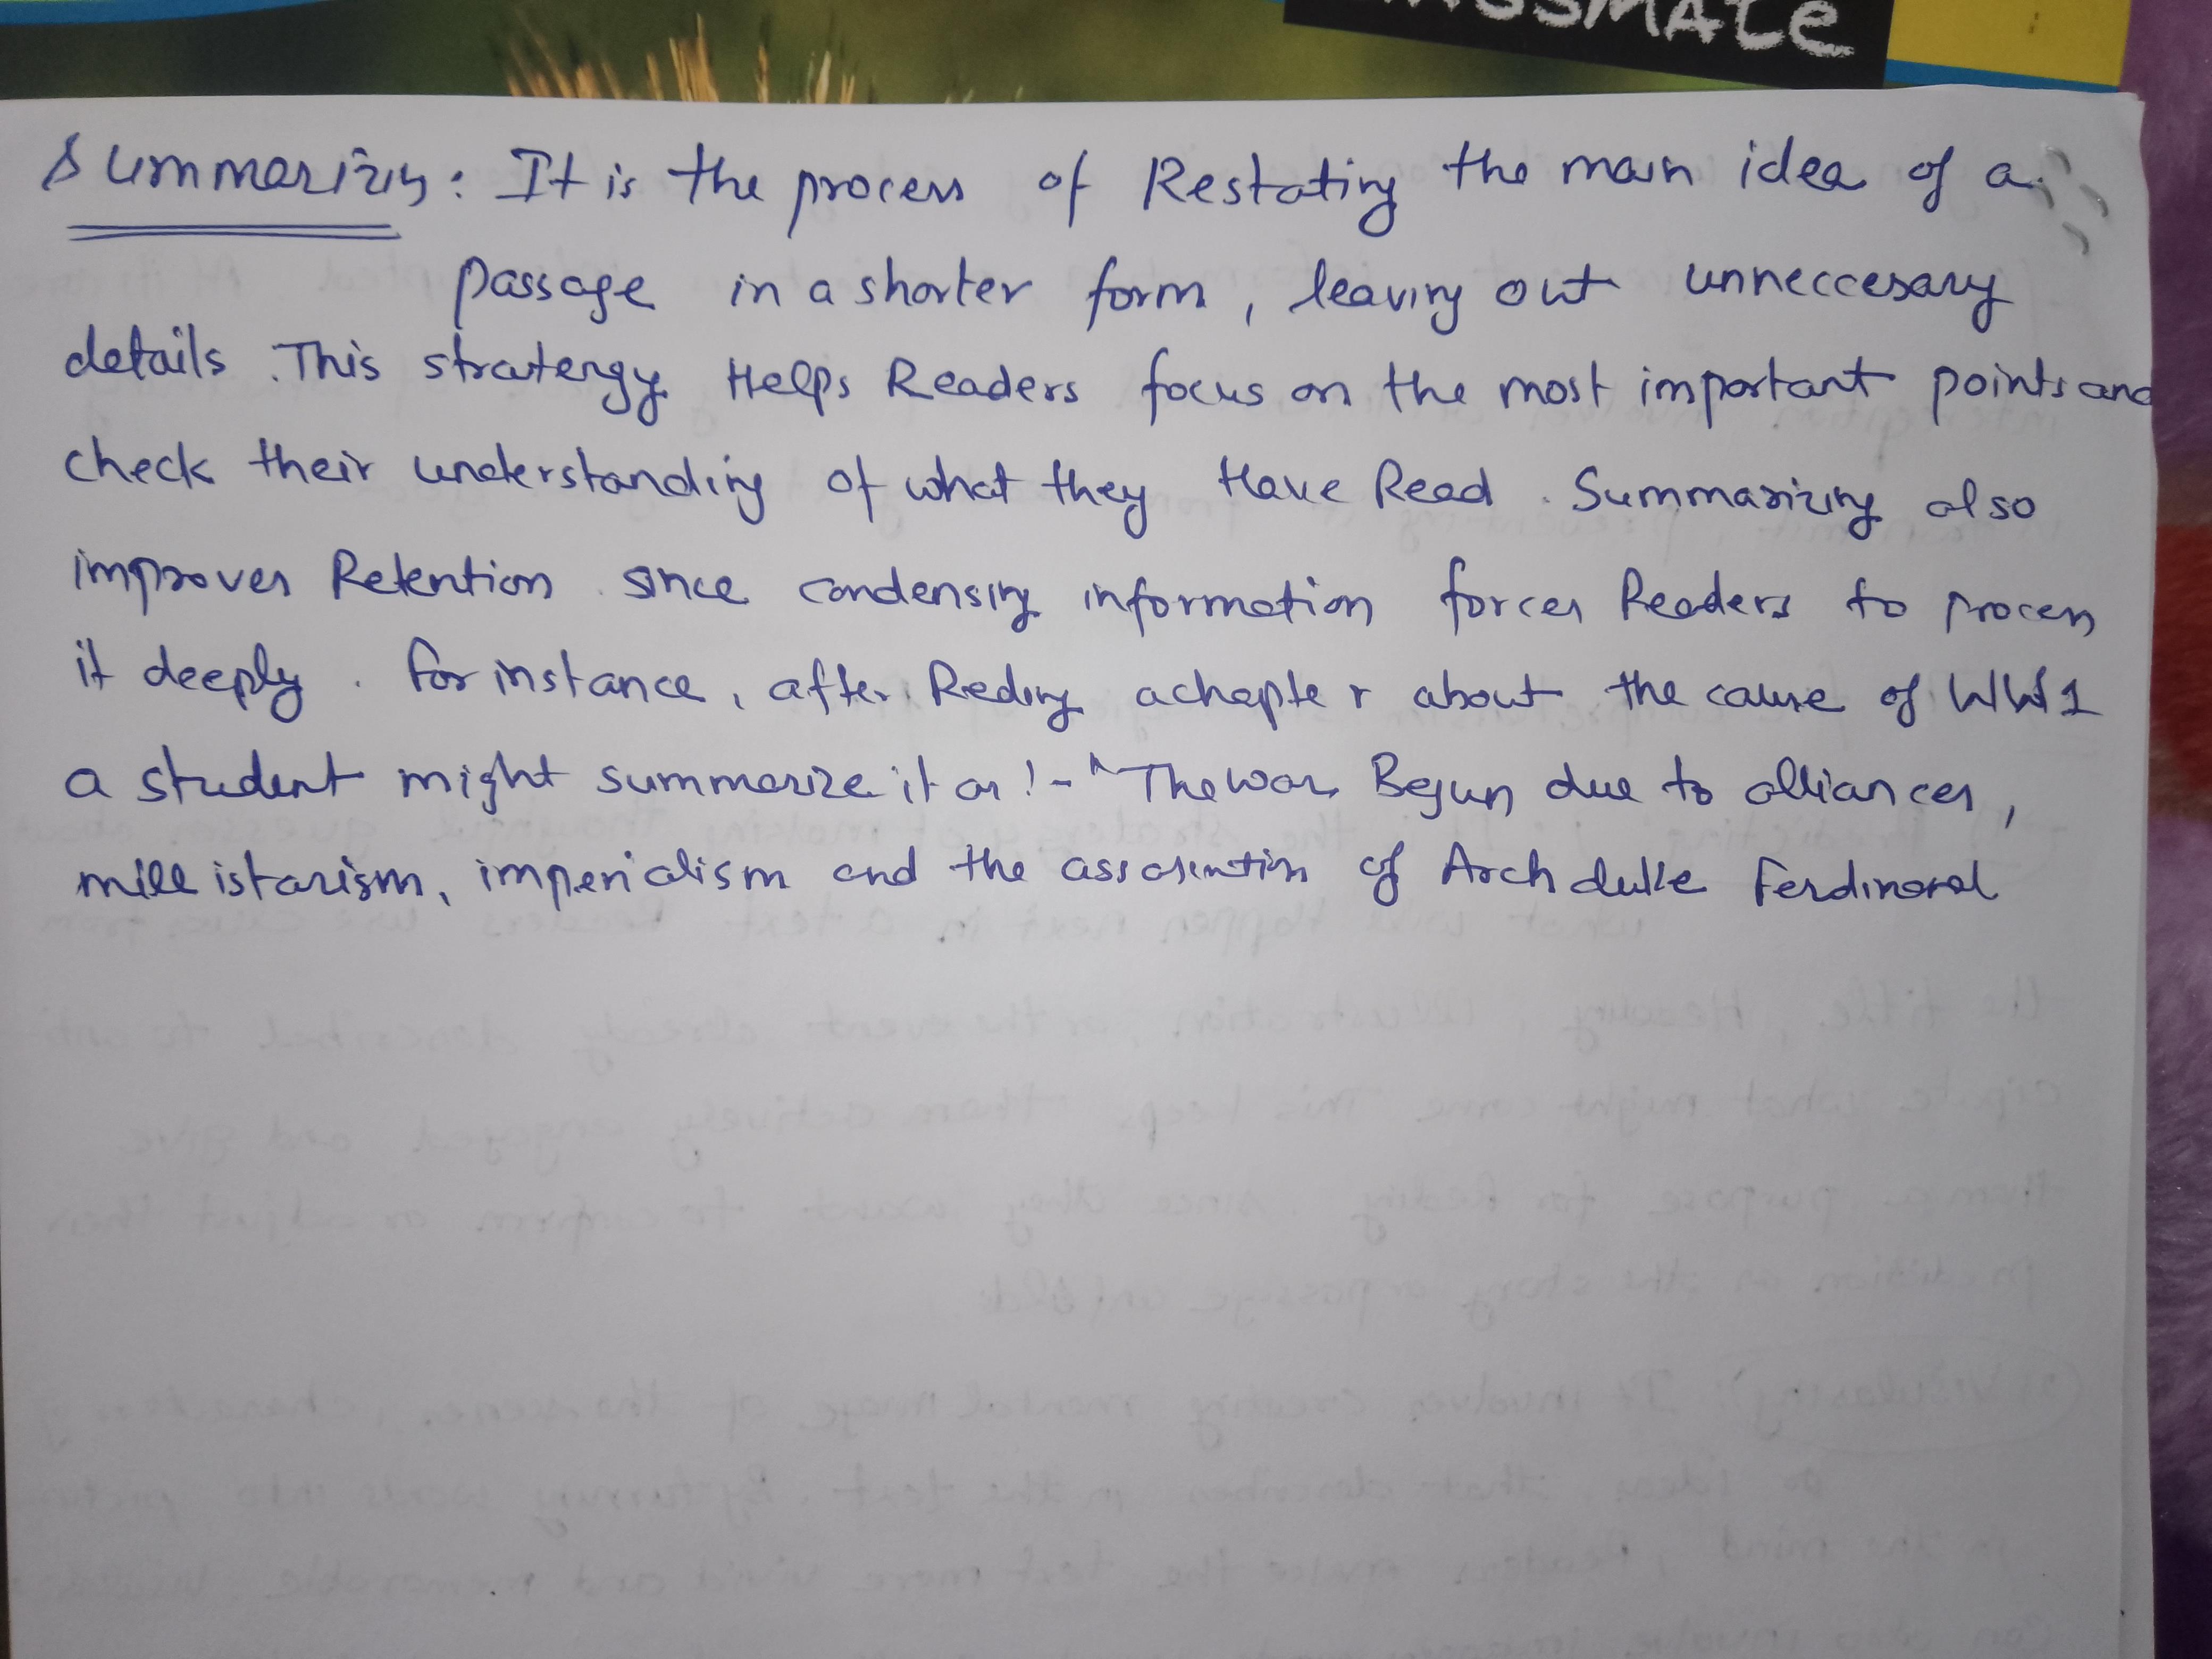 CLASSMATE
Summarizing: It is the process of Restating the main idea of a
passage in a shorter form, leaving out unneccesary
details. This stratergy Helps Readers focus on the most important points and
check their understanding of what they Have Read. Summarizing also
improves Retention since condensing information forces Readers to process
it deeply. For instance, after Reding a chapter about the cause of WW1
a student might summarize it as :- "The war Begun due to alliances,
millistarism, imperialism and the of Archduke Ferdinand